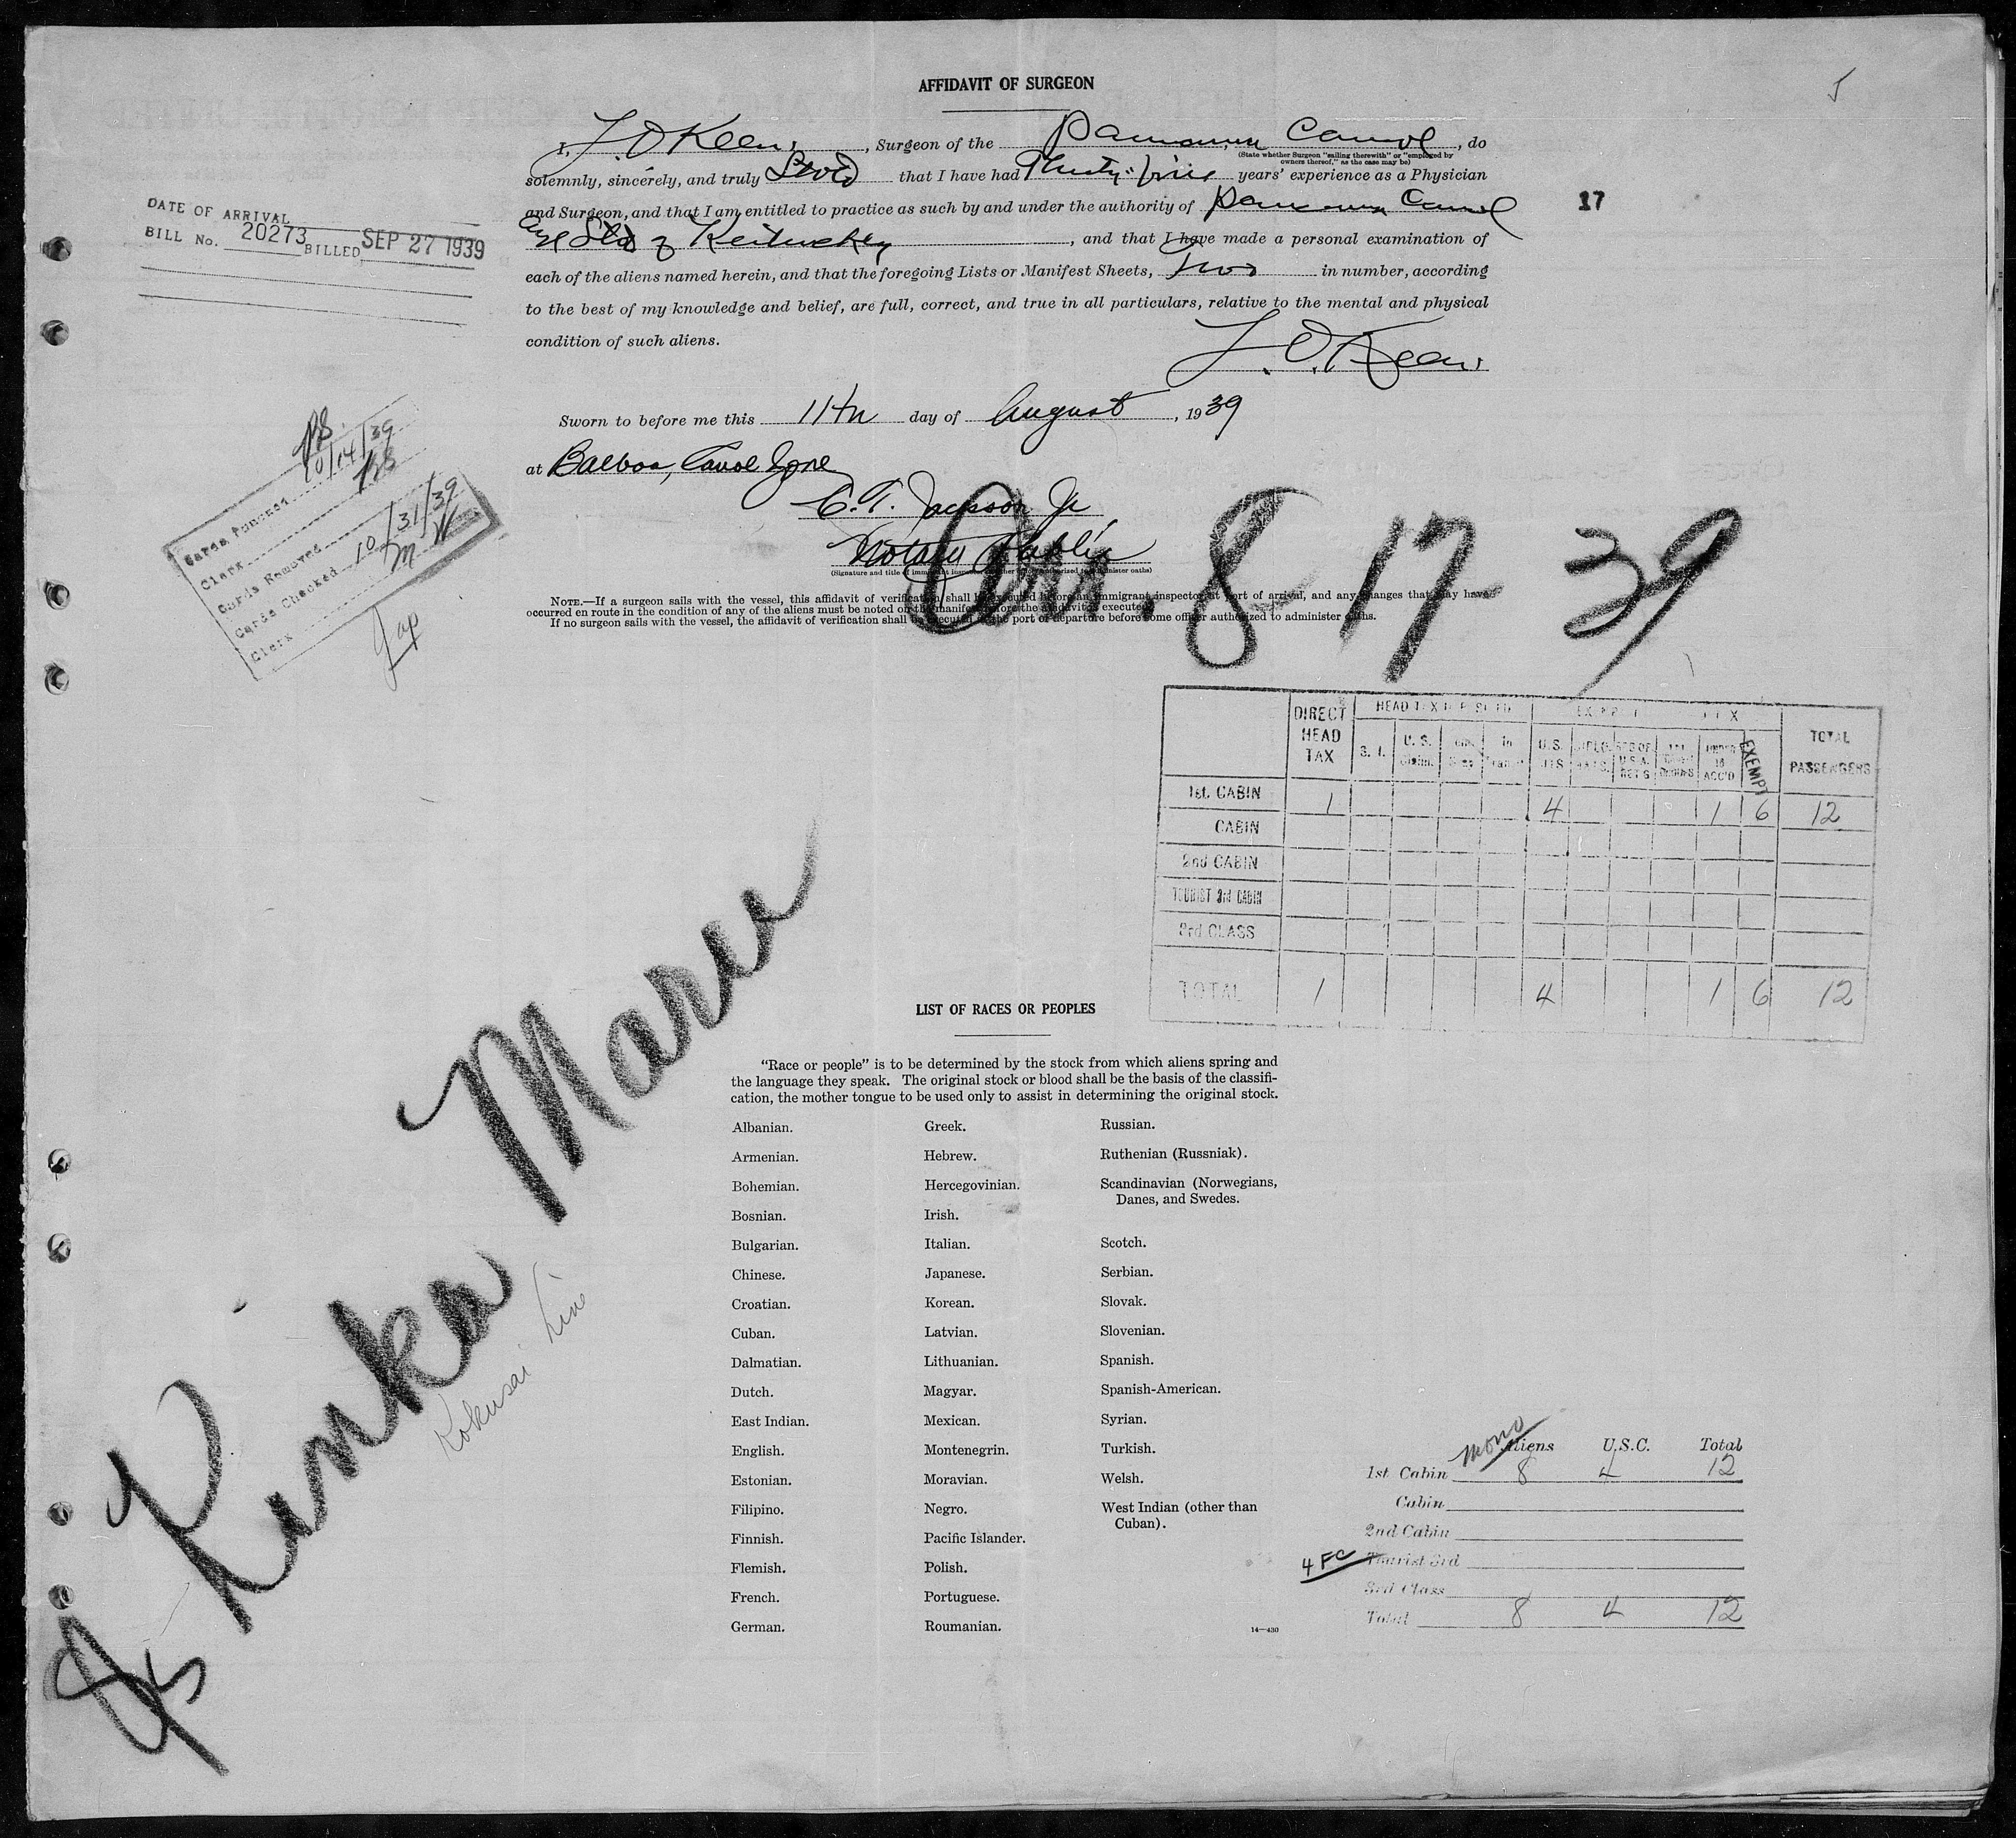 AFFIDAVIT OF SURGEON
I, L. O. Keen, Surgeon of the Panama Canal, do
(State whether Surgeon "sailing therewith" or "employed by
owners thereof," as the case may be)
solemnly, sincerely, and truly that I have had Thirty-five years' experience as a Physician
and Surgeon, and that I am entitled to practice as such by and under the authority of Panama Canal
State of Kentucky, and that I have made a personal examination of
each of the aliens named herein, and that the foregoing Lists or Manifest Sheets, Two in number, according
to the best of my knowledge and belief, are full, correct, and true in all particulars, relative to the mental and physical
condition of such aliens.
L. O. Keen
Sworn to before me this 11th day of August, 1939
at Balboa, Canal Zone
C. T. Jackson Jr
Notary Public
(Signature and title of immigrant inspector or other officer authorized to administer oaths)
NOTE.—If a surgeon sails with the vessel, this affidavit of verification shall be executed before an immigrant inspector at port of arrival, and any changes that may have
occurred en route in the condition of any of the aliens must be noted on the manifest before the affidavit is executed.
If no surgeon sails with the vessel, the affidavit of verification shall be executed at the port of departure before some officer authorized to administer oaths.
17
DATE OF ARRIVAL
BILL No. 20273 BILLED SEP 27 1939
Cards Punched 10/14/39
Clerk
Cards Removed
Cards Checked 10/31/39
Clerk M W
Jap
Arr. 8-17-39
DIRECT HEAD TAX
S. I.
U. S.
In
U.S.
UNDER 16 ACC'D
EXEMPT
TOTAL PASSENGERS
1st. CABIN 1 4 1 6 12
CABIN
2nd CABIN
TOURIST 3rd CABIN
3rd CLASS
TOTAL 1 4 1 6 12
Kinka Maru
Kokusai Line
LIST OF RACES OR PEOPLES
"Race or people" is to be determined by the stock from which aliens spring and
the language they speak. The original stock or blood shall be the basis of the classifi-
cation, the mother tongue to be used only to assist in determining the original stock.
Albanian.
Armenian.
Bohemian.
Bosnian.
Bulgarian.
Chinese.
Croatian.
Cuban.
Dalmatian.
Dutch.
East Indian.
English.
Estonian.
Filipino.
Finnish.
Flemish.
French.
German.
Greek.
Hebrew.
Hercegovinian.
Irish.
Italian.
Japanese.
Korean.
Latvian.
Lithuanian.
Magyar.
Mexican.
Montenegrin.
Moravian.
Negro.
Pacific Islander.
Polish.
Portuguese.
Roumanian.
Russian.
Ruthenian (Russniak).
Scandinavian (Norwegians,
Danes, and Swedes.
Scotch.
Serbian.
Slovak.
Slovenian.
Spanish.
Spanish-American.
Syrian.
Turkish.
Welsh.
West Indian (other than
Cuban).
14—430
mono
Aliens U.S.C. Total
1st Cabin 8 4 12
Cabin
2nd Cabin
4 FC Tourist 3rd
3rd Class
Total 8 4 12